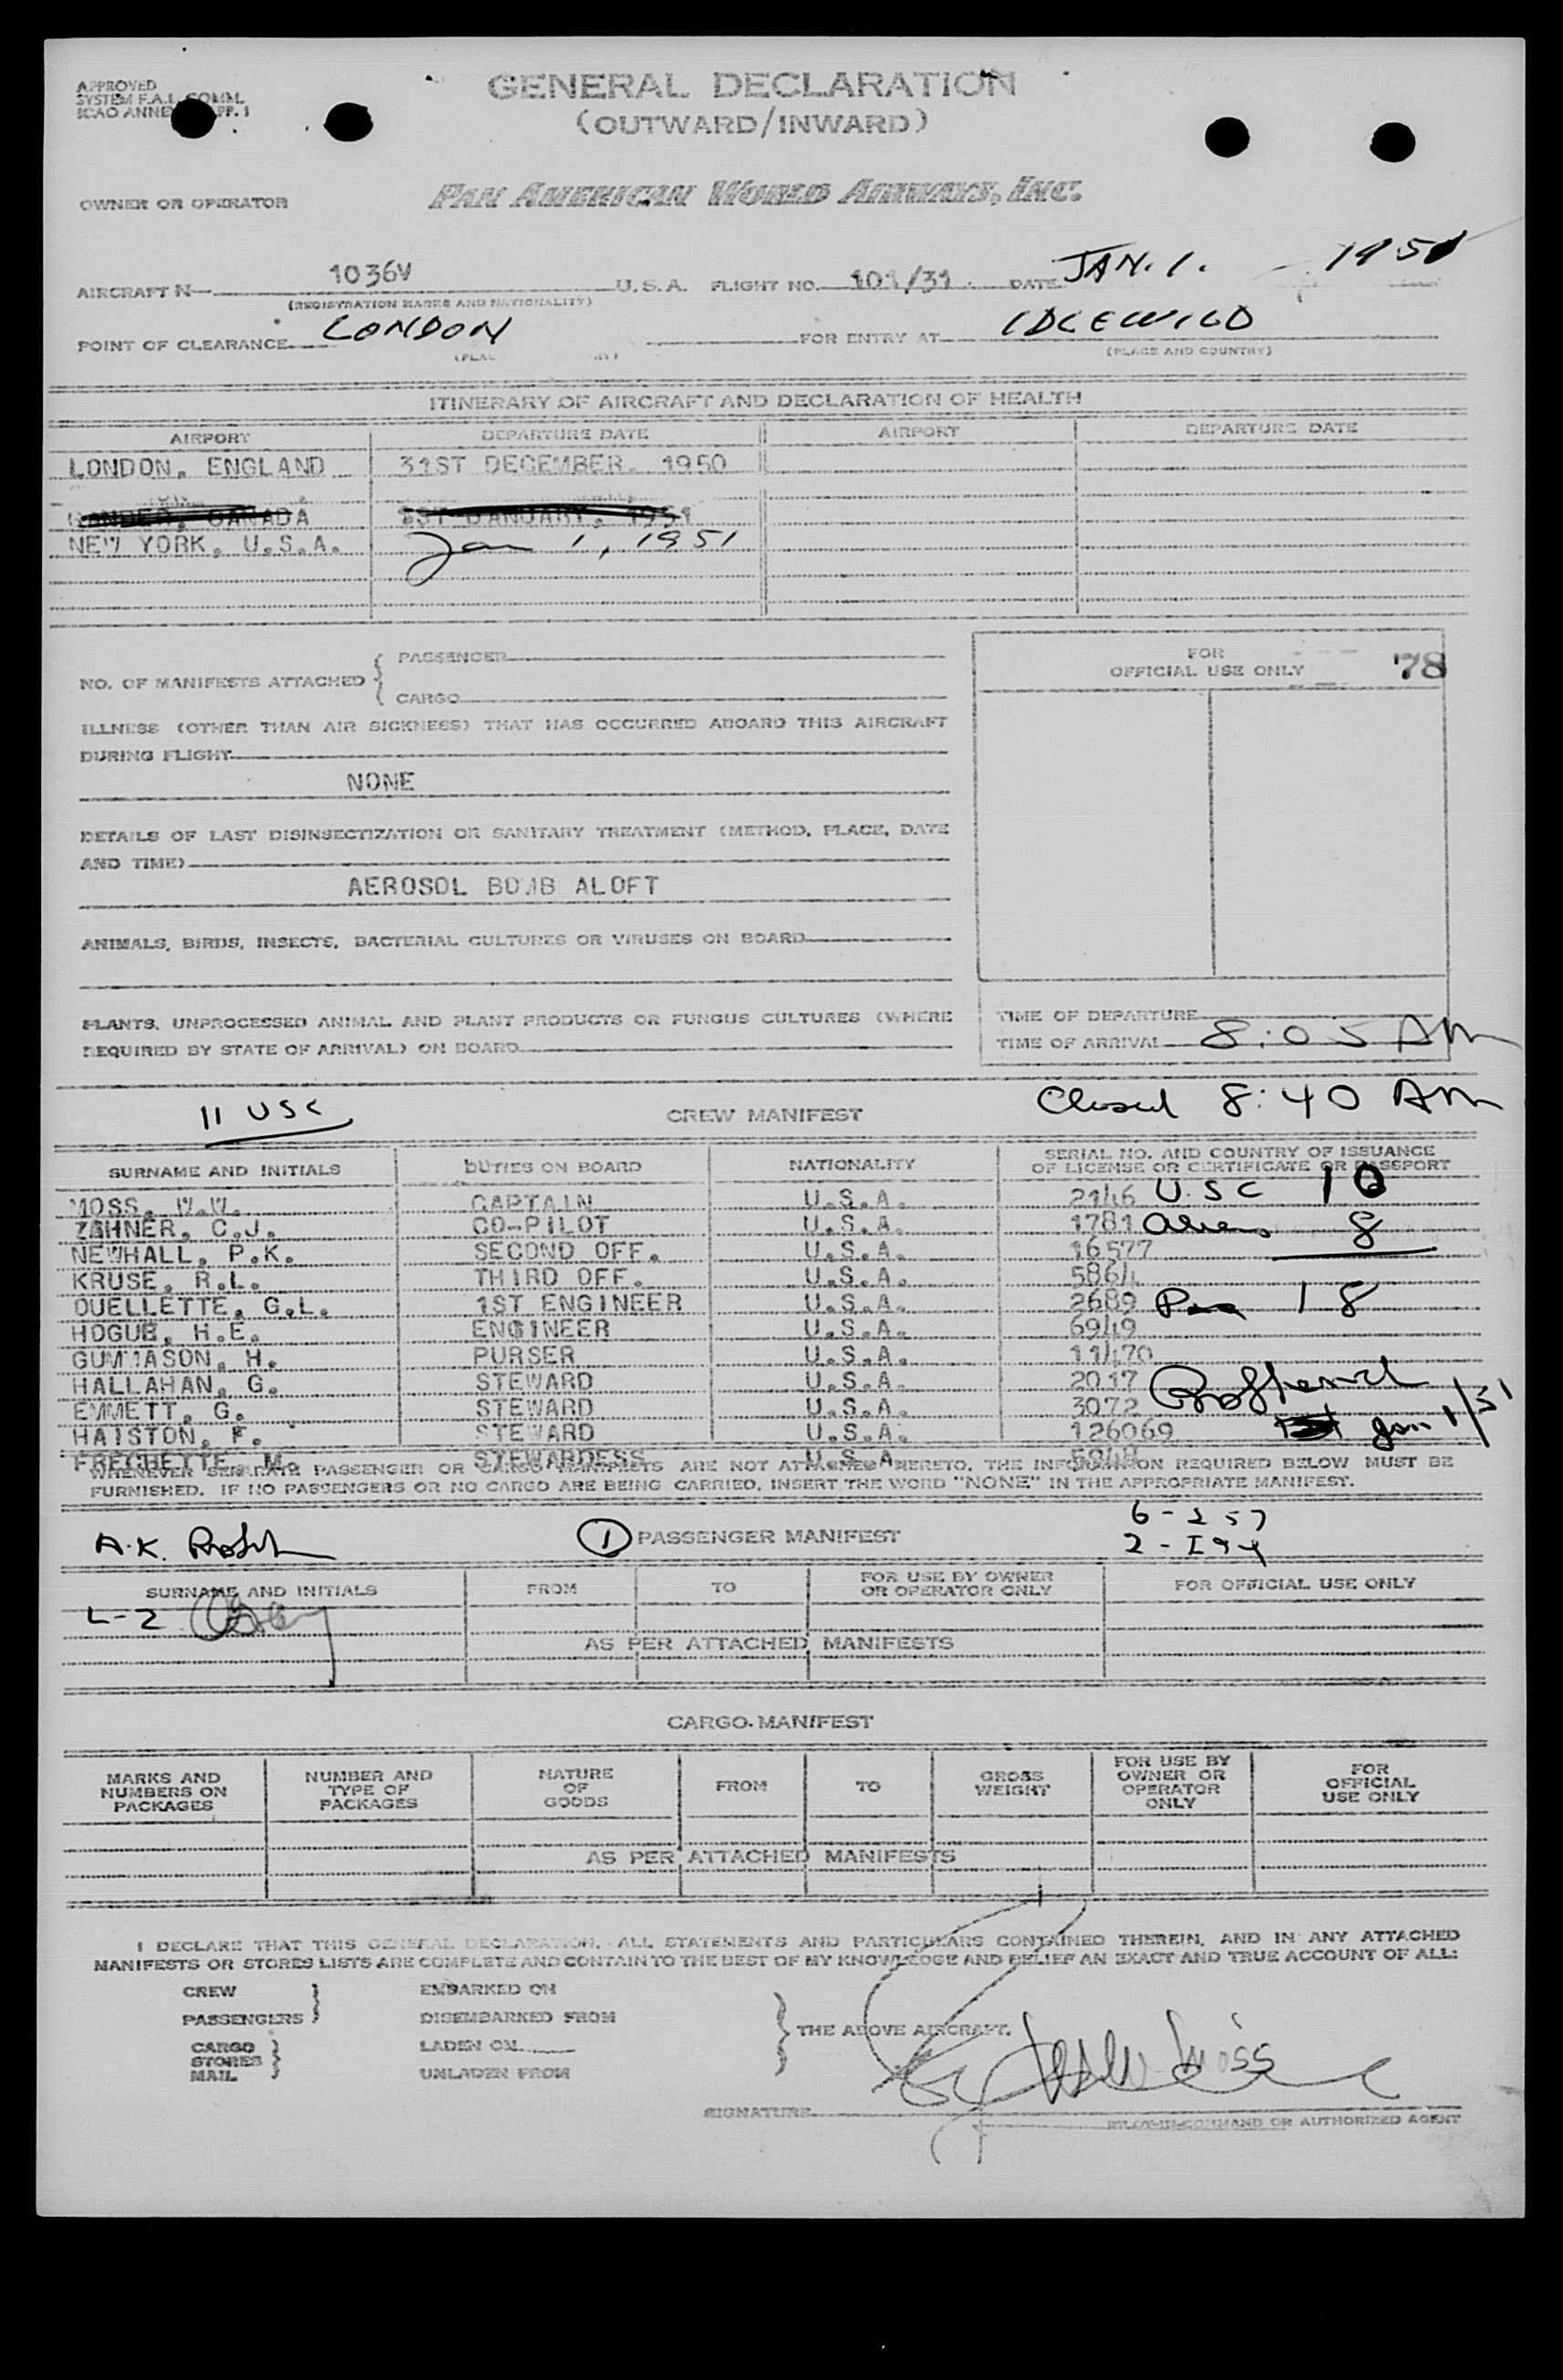 APPROVED
SYSTEM F.A.L. COMM.
ICAO ANNEX PP. 1
GENERAL DECLARATION
(OUTWARD/INWARD)
OWNER OR OPERATOR PAN AMERICAN WORLD AIRWAYS, INC.
AIRCRAFT N 1036V U.S.A. FLIGHT NO. 101/31 DATE JAN. 1. 1951
(REGISTRATION MARKS AND NATIONALITY)
POINT OF CLEARANCE LONDON FOR ENTRY AT IDLEWILD
(PLACE AND COUNTRY)
ITINERARY OF AIRCRAFT AND DECLARATION OF HEALTH
AIRPORT DEPARTURE DATE AIRPORT DEPARTURE DATE
LONDON, ENGLAND 31ST DECEMBER, 1950
GANDER, CANADA 1ST JANUARY, 1951
NEW YORK, U.S.A. Jan 1, 1951
NO. OF MANIFESTS ATTACHED { PASSENGER
CARGO
FOR
OFFICIAL USE ONLY 78
ILLNESS (OTHER THAN AIR SICKNESS) THAT HAS OCCURRED ABOARD THIS AIRCRAFT
DURING FLIGHT
NONE
DETAILS OF LAST DISINSECTIZATION OR SANITARY TREATMENT (METHOD, PLACE, DATE
AND TIME)
AEROSOL BOMB ALOFT
ANIMALS, BIRDS, INSECTS, BACTERIAL CULTURES OR VIRUSES ON BOARD
PLANTS, UNPROCESSED ANIMAL AND PLANT PRODUCTS OR FUNGUS CULTURES (WHERE
REQUIRED BY STATE OF ARRIVAL) ON BOARD
TIME OF DEPARTURE
TIME OF ARRIVAL 8:05 AM
11 USC CREW MANIFEST Closed 8:40 AM
SURNAME AND INITIALS DUTIES ON BOARD NATIONALITY SERIAL NO. AND COUNTRY OF ISSUANCE
OF LICENSE OR CERTIFICATE OR PASSPORT
MOSS, W.W. CAPTAIN U.S.A. 2146 U.S C 10
ZAHNER, C.J. CO-PILOT U.S.A. 1781 Aliens 8
NEWHALL, P.K. SECOND OFF. U.S.A. 16577
KRUSE, R.L. THIRD OFF. U.S.A. 5864
OUELLETTE, G.L. 1ST ENGINEER U.S.A. 2689 Pax 18
HOGUE, H.E. ENGINEER U.S.A. 6949
GUMMASON, H. PURSER U.S.A. 11470
HALLAHAN, G. STEWARD U.S.A. 2017
EMMETT, G. STEWARD U.S.A. 3072
HAISTON, F. STEWARD U.S.A. 126069 Jan 1/51
FRECHETTE, M. STEWARDESS U.S.A.
WHENEVER SEPARATE PASSENGER OR CARGO MANIFESTS ARE NOT ATTACHED HERETO, THE INFORMATION REQUIRED BELOW MUST BE
FURNISHED. IF NO PASSENGERS OR NO CARGO ARE BEING CARRIED, INSERT THE WORD "NONE" IN THE APPROPRIATE MANIFEST.
6 - 257
A.K. 1 PASSENGER MANIFEST 2 - I 94
SURNAME AND INITIALS FROM TO FOR USE BY OWNER
OR OPERATOR ONLY FOR OFFICIAL USE ONLY
L-2
AS PER ATTACHED MANIFESTS
CARGO MANIFEST
MARKS AND
NUMBERS ON
PACKAGES NUMBER AND
TYPE OF
PACKAGES NATURE
OF
GOODS FROM TO GROSS
WEIGHT FOR USE BY
OWNER OR
OPERATOR
ONLY FOR
OFFICIAL
USE ONLY
AS PER ATTACHED MANIFESTS
I DECLARE THAT THIS GENERAL DECLARATION, ALL STATEMENTS AND PARTICULARS CONTAINED THEREIN, AND IN ANY ATTACHED
MANIFESTS OR STORES LISTS ARE COMPLETE AND CONTAIN TO THE BEST OF MY KNOWLEDGE AND BELIEF AN EXACT AND TRUE ACCOUNT OF ALL:
CREW
PASSENGERS } EMBARKED ON
DISEMBARKED FROM
CARGO
STORES
MAIL } LADEN ON
UNLADEN FROM } THE ABOVE AIRCRAFT.
SIGNATURE Moss
PILOT-IN-COMMAND OR AUTHORIZED AGENT